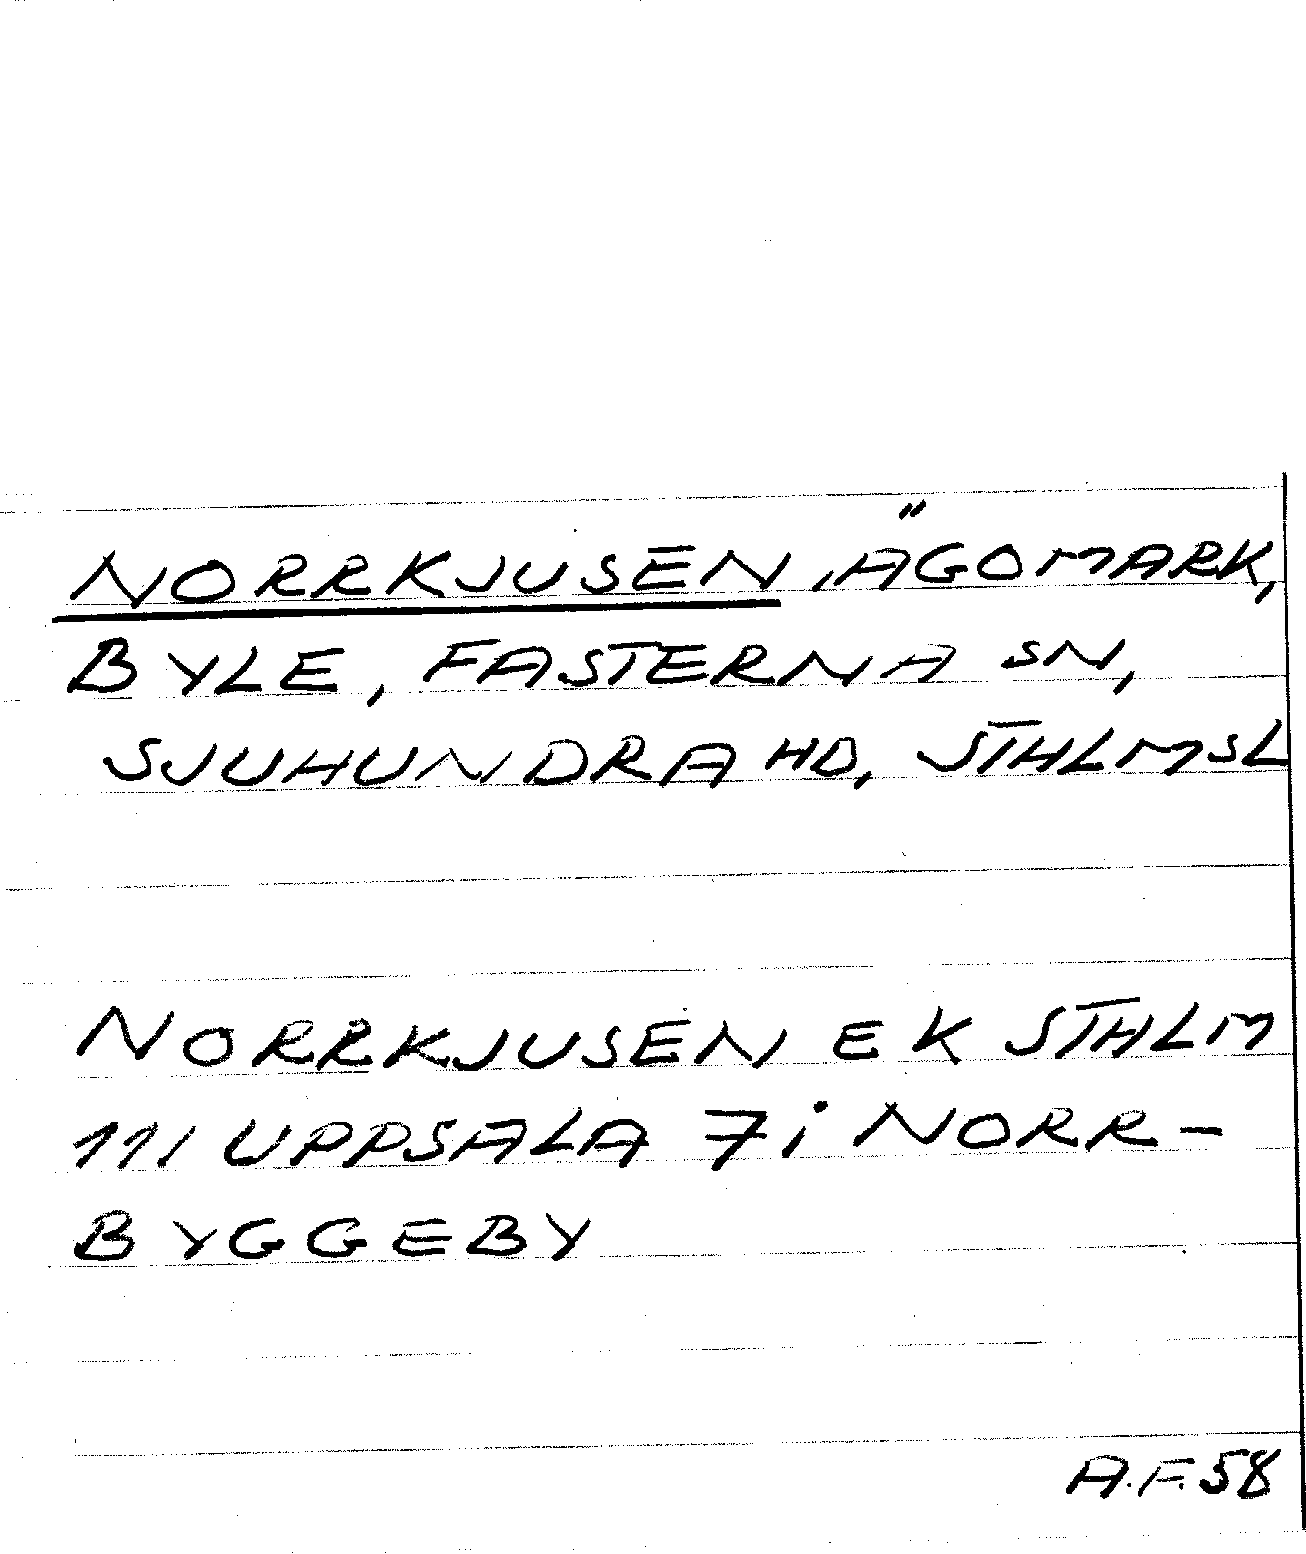 NORRKJUSEN, ÄGOMARK,
BYLE, FASTERNA SN,
SJUHUNDRA HD, STHLMSL
NORRKJUSEN EK STHLM
111 UPPSALA 7 i NORR-
BYGGEBY
A.F. 58